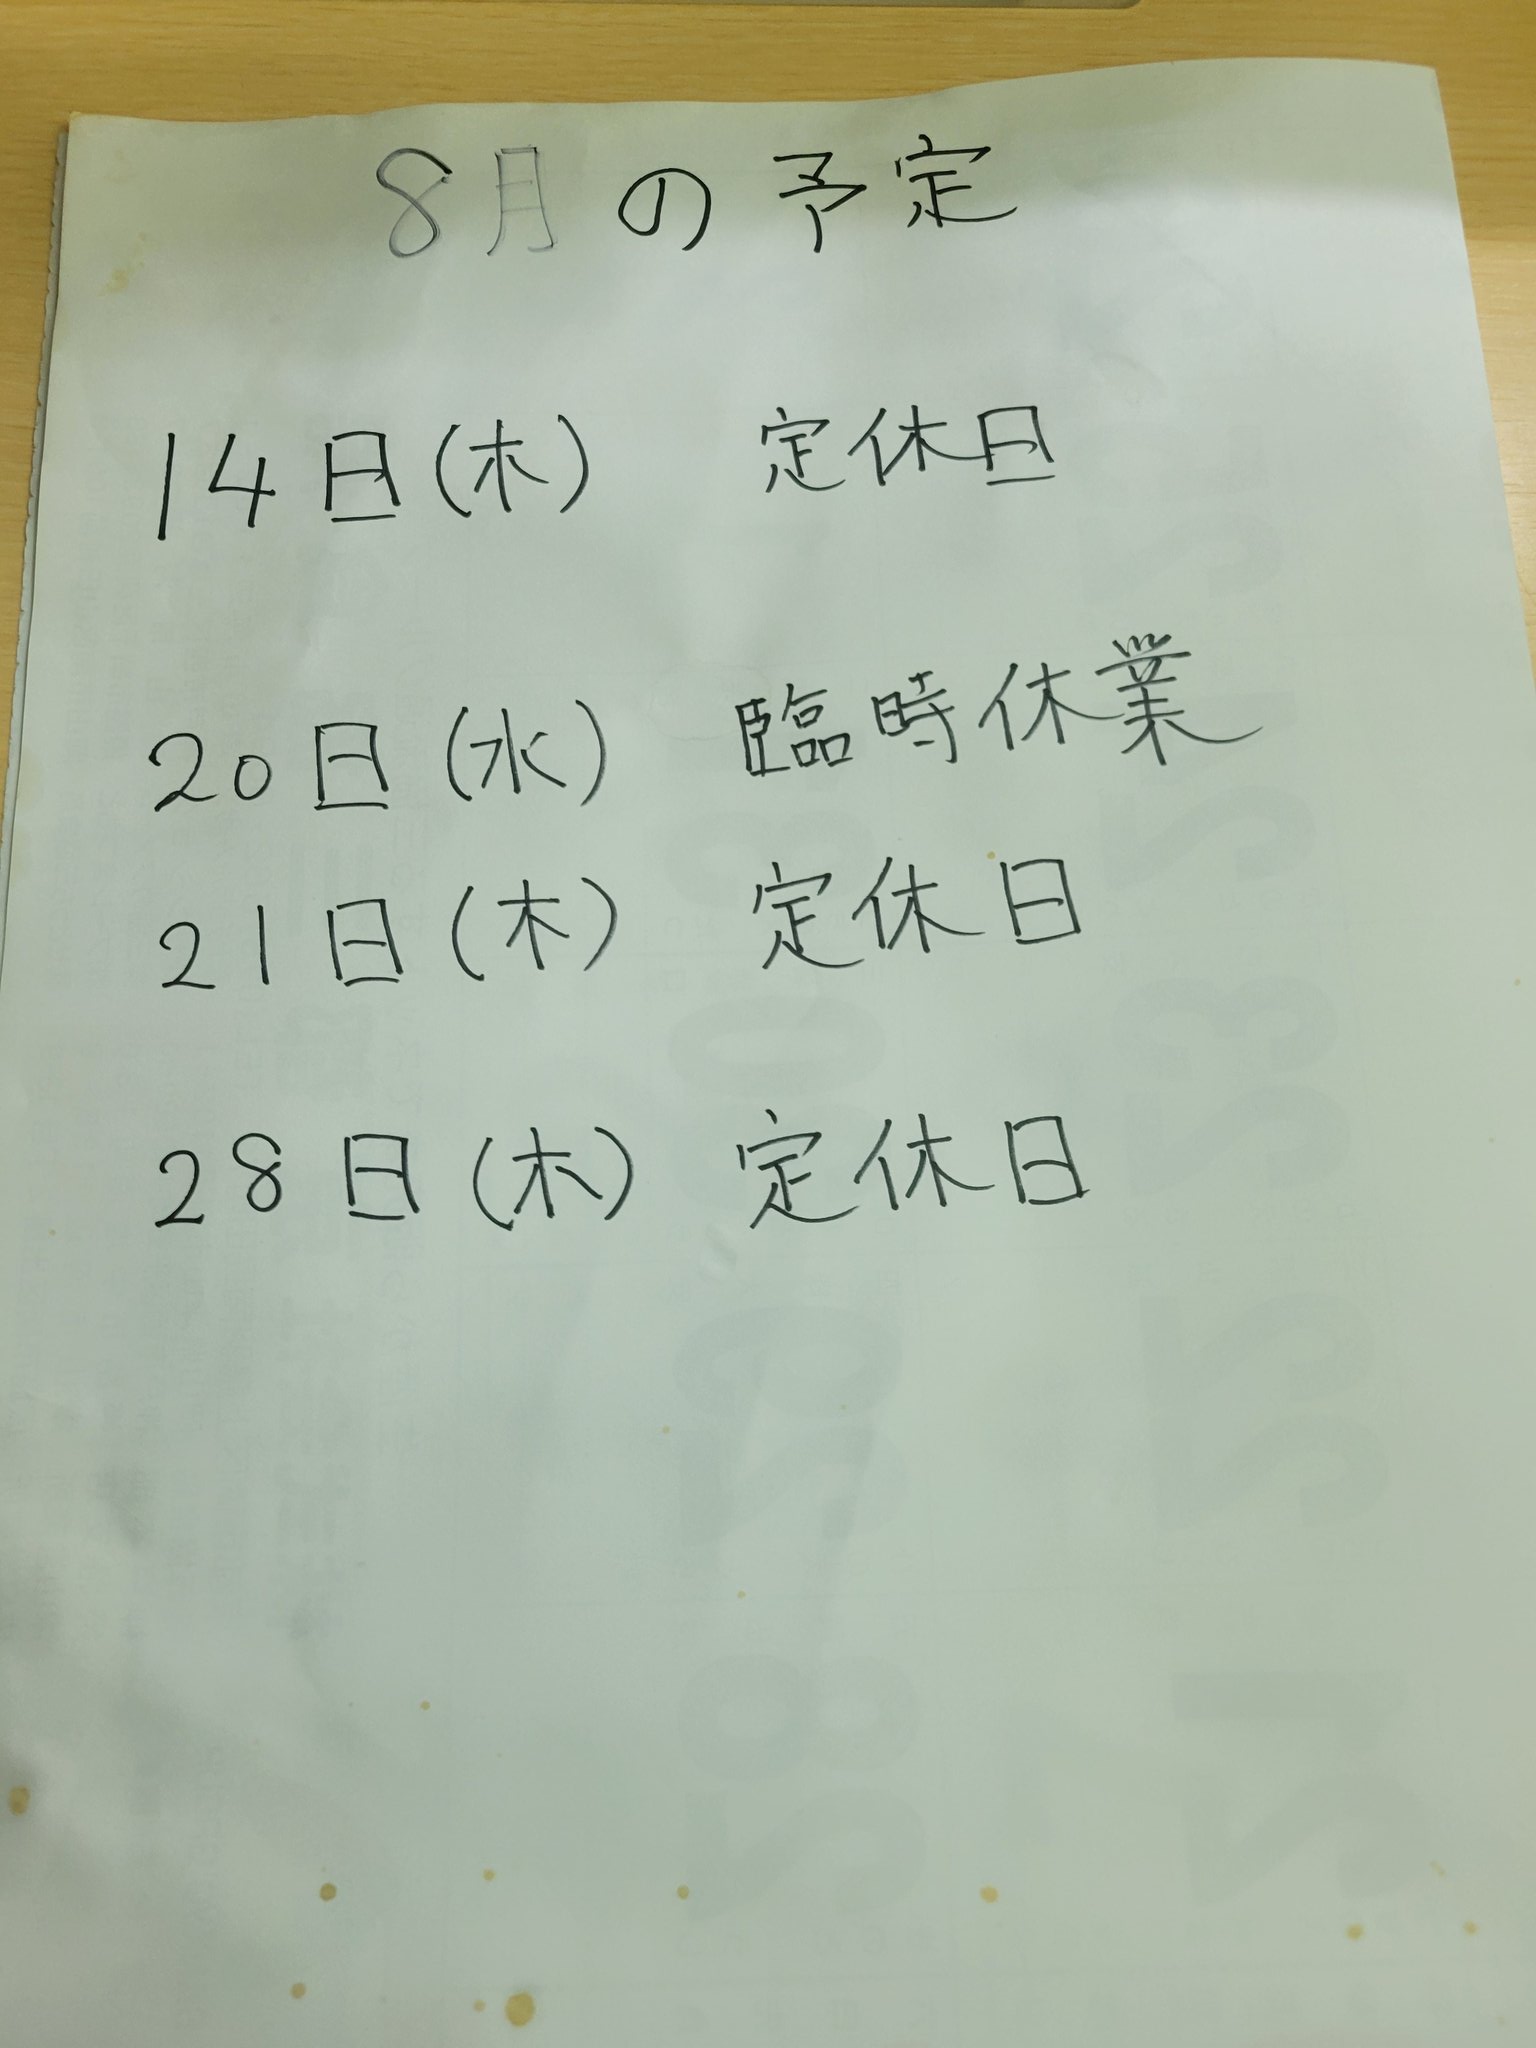 8月の予定
14日(木) 定休日
20日(水) 臨時休業
21日(木) 定休日
28日(木) 定休日